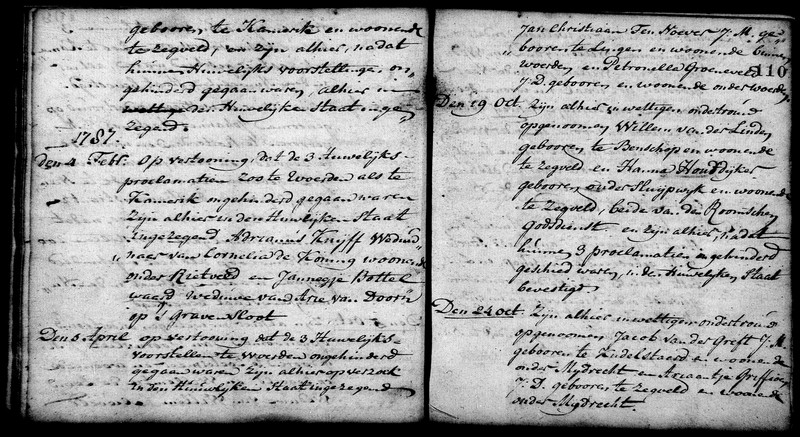 gebooren te Kamerik en woonende
te Zegveld, en zijn alhier, nadat
hunne Huwelijks voorstellinge on,,
gehinderd gegaan waren, alhier in
der Huwelijke Staat inge,,
zegend.
1787.
Den 4 Febr. Op vertooning, dat de 3 Huwelijks-
proclamatien zoo te Woerden als te
Kamerik ongehinderd gegaan waren
zijn alhier in den Huwlijken Staat
ingezegend Adrianus Knijff Weduw
,,naar van Cornelia de Koning woonende
onder Rietveld en Jannegje Bottel
waard Weduwe van Arie van Doorn
op 's Gravesloot
Den 5 April op vertooning dat de 3 Huwelijks-
voorstellen te Woerden ongehinderd
gegaan waren zijn alhier op verzoek
in den Huwlijken Staat ingezegend
Jan Christiaan Ten Noever J. M. ge,,
,,booren te Lingen en woonende binnen
Woerden en Petronella Groeneveld
110
J. D. gebooren en woonende onder Woerden
Den 19 Oct. Zijn alhier in wettigen ondertrouw
opgenoomen Willem van der Linden
gebooren te Benschop en woonende
te Zegveld en Hanna Houdijker
gebooren onder Sluijpwijk en woonende
te Zegveld, beide van de Roomschen
Godsdienst en zijn alhier, nadat
hunne 3 proclamatien ongehinderd
geschied waren, in den Huwelijken Staat
bevestigd
Den 24 oct. Zijn alhier in wettigen ondertrouw
opgenoomen Jacob van der Greft J. M.
gebooren te en woonende
onder Mijdrecht en Ariaantje Griffioen
J. D. gebooren te Zegveld en woonende
onder Mijdrecht.